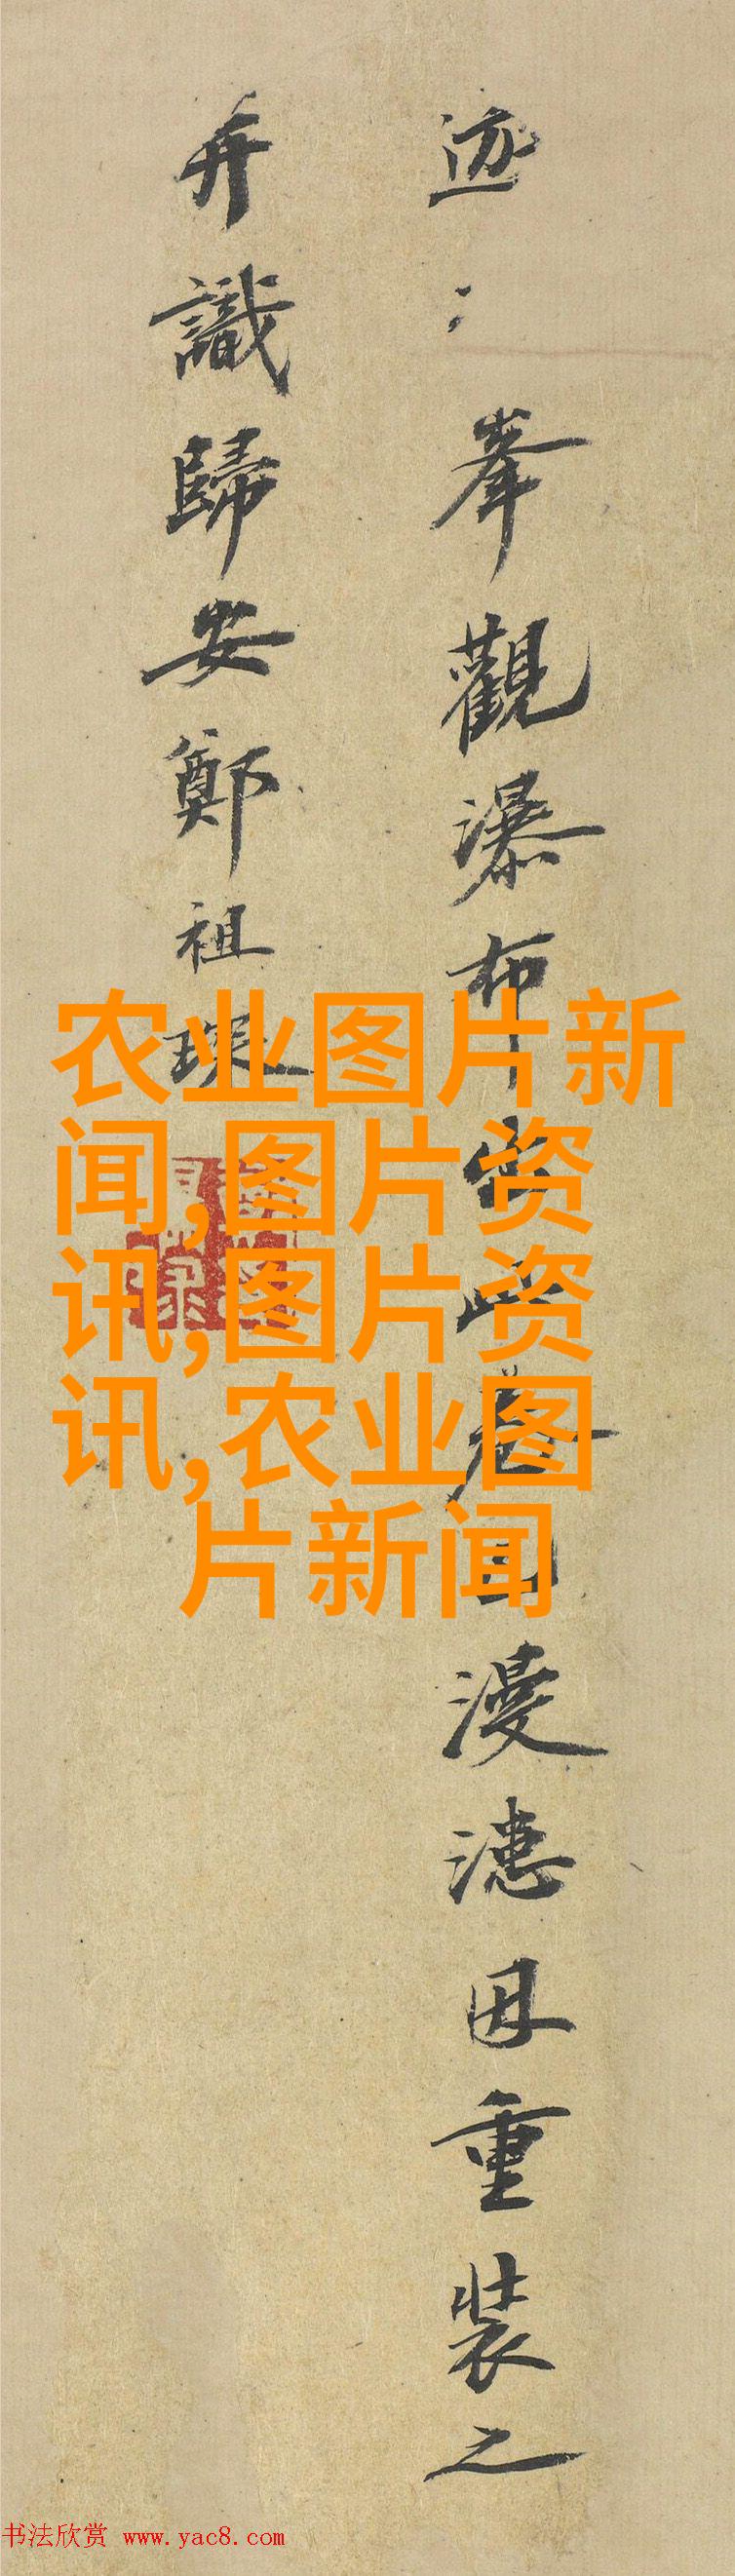 迹〻峯觀瀑布
漫漶因重裝之
弁識歸安鄭祖琛
农业图片新
闻,图片资
讯,图片资
讯,农业图
片新闻
书法欣赏 www.yac8.com